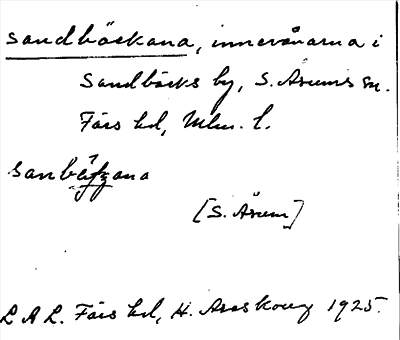 sandbäckana, innevånarna i
Sandbäcks by, S. Åsums sn.
Färs hd, Mlm. l.
sanb
[S. Åsum]
L A L. Färs hd, H. Areskoug 1925.